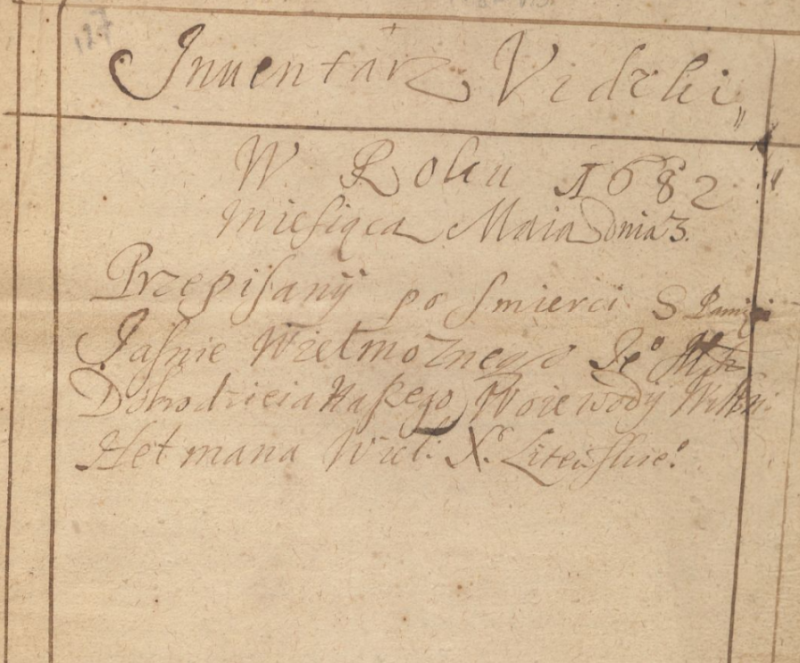 127
Inuentarz Vidzki
W Roku 1682
Miesiąca Maia Dnia 3.
Przepisany po smierci S Pamięci
Jasnie Wielmożnego Je° Mśći
Dobrodzieia Naszego Woiewody Wilen:
Hetmana Wiel: X° Litewskie°